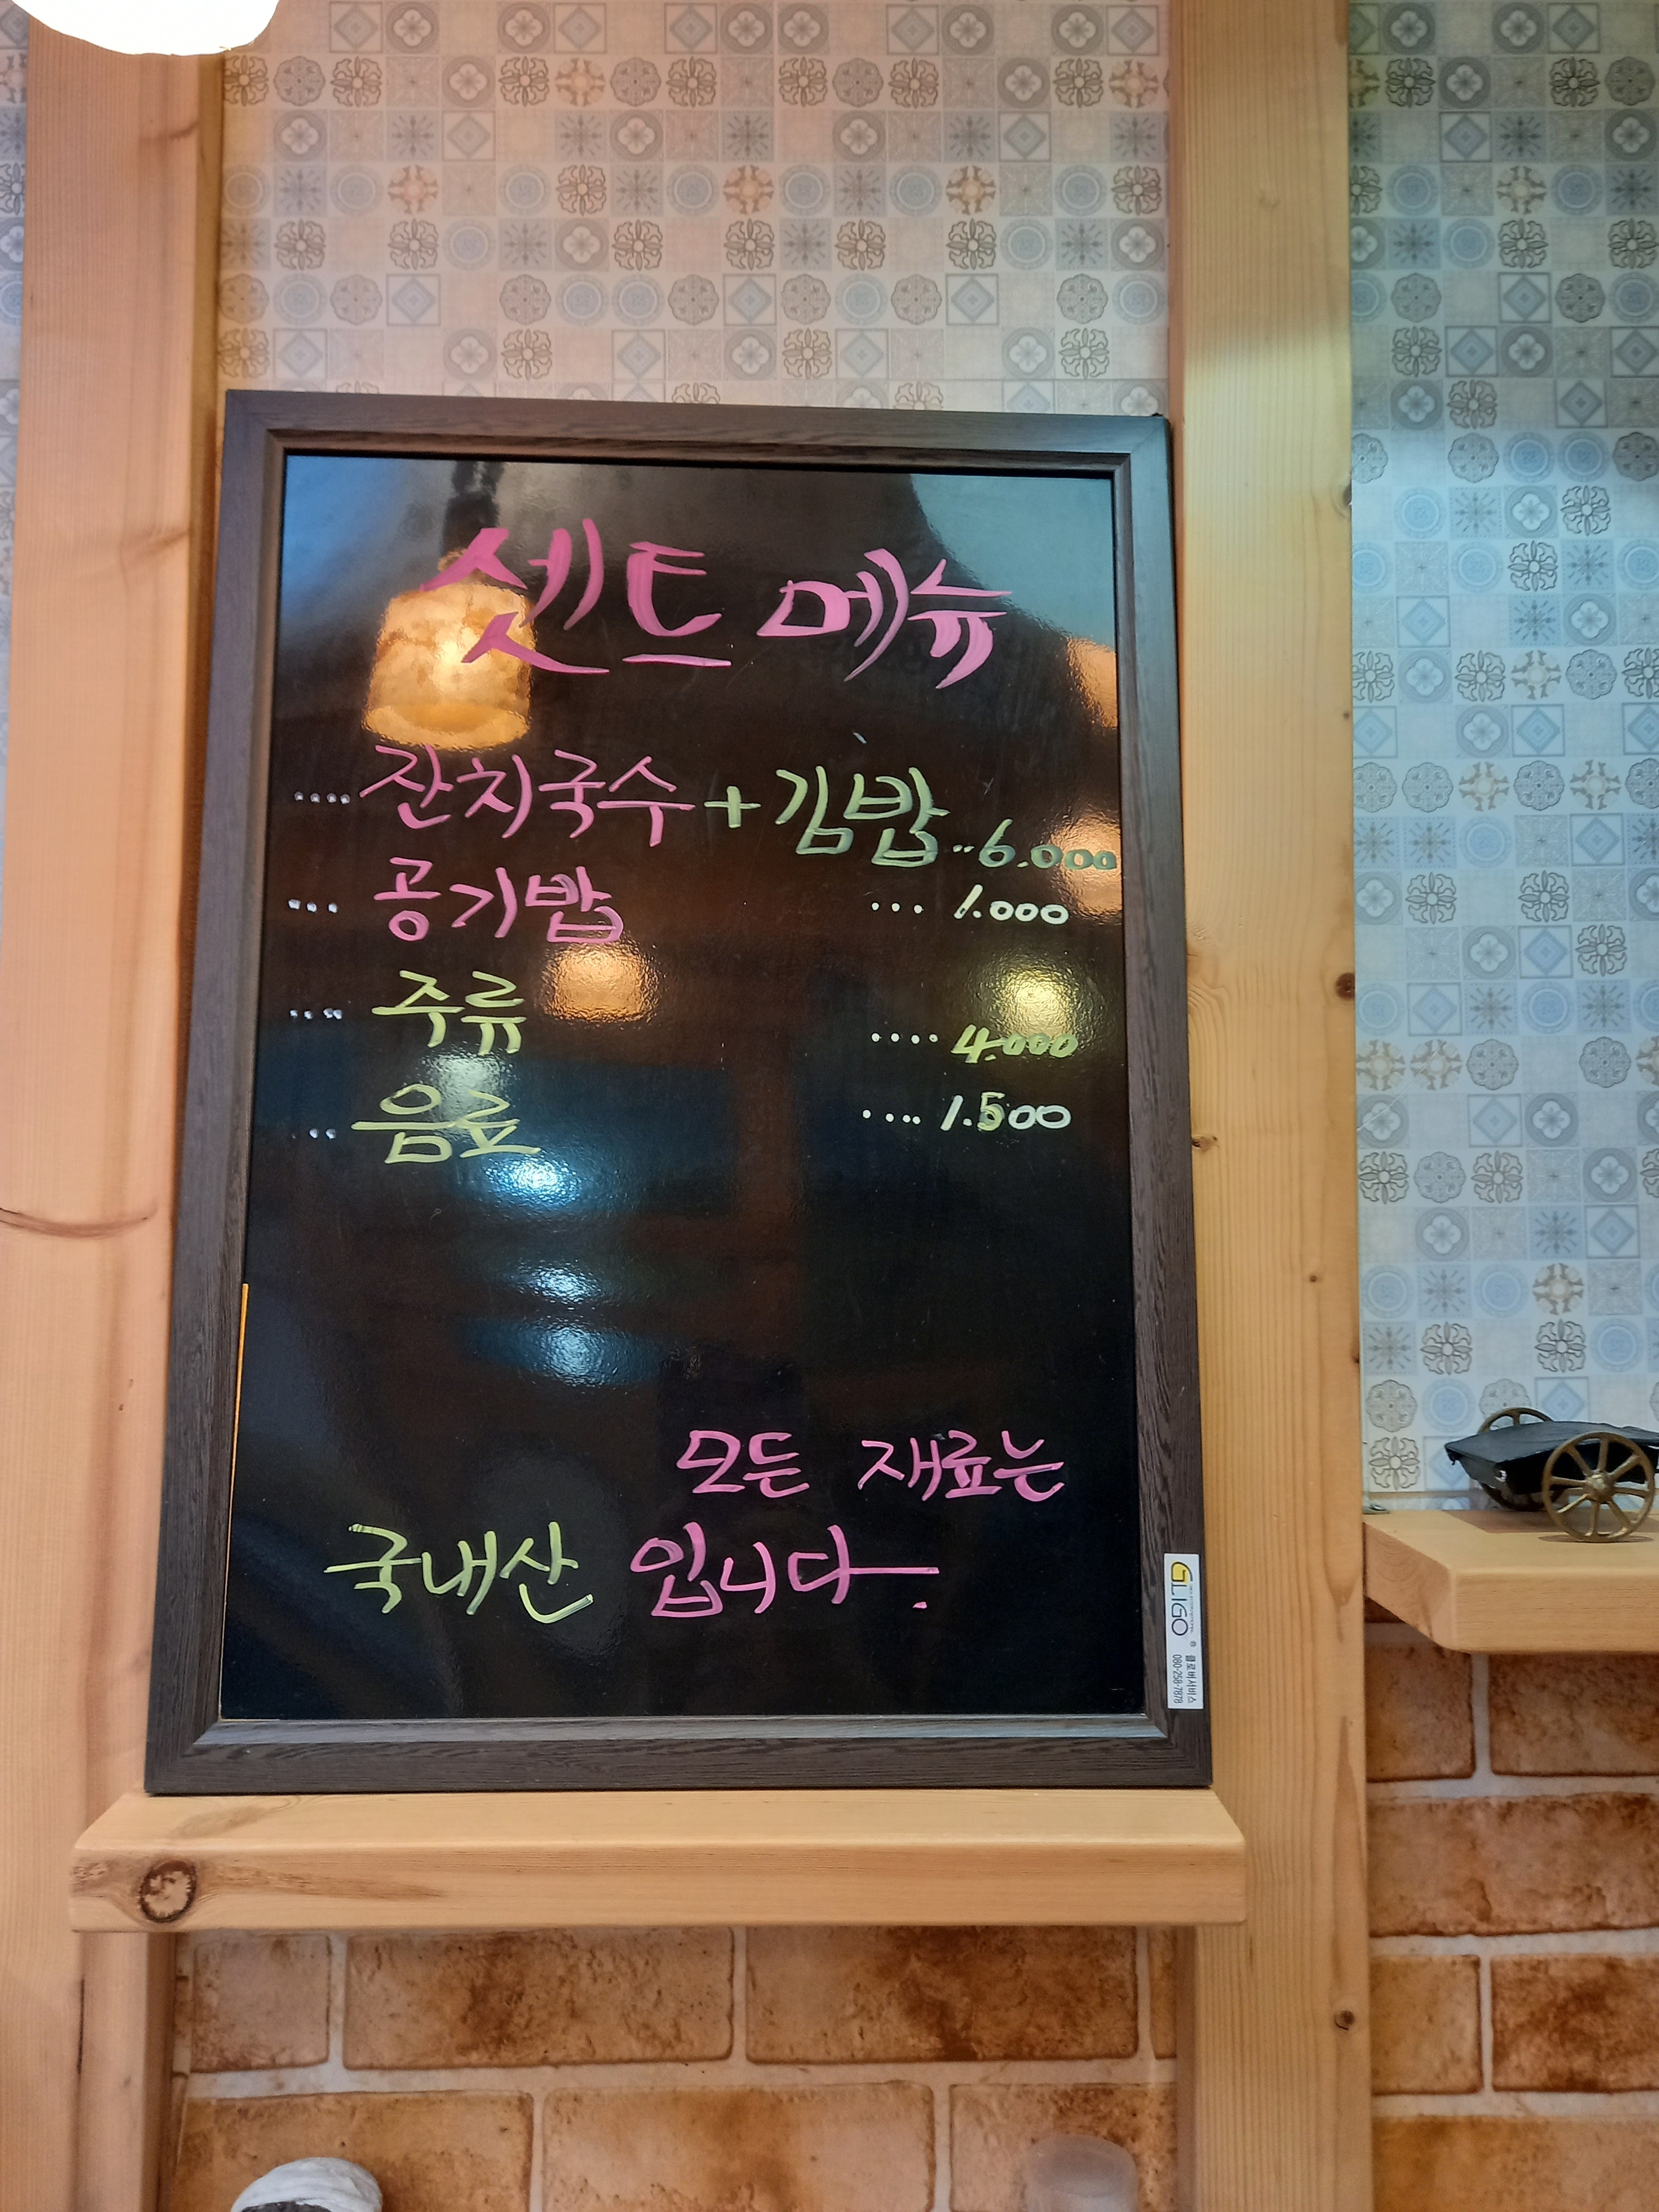 셋트 메뉴
.... 잔치국수 + 김밥 .. 6.000
... 공기밥 ... 1.000
.... 주류 .... 4.000
... 음료 .... 1.500
모든 재료는
국내산 입니다.
GLIGO
클로버서비스
080-258-7878